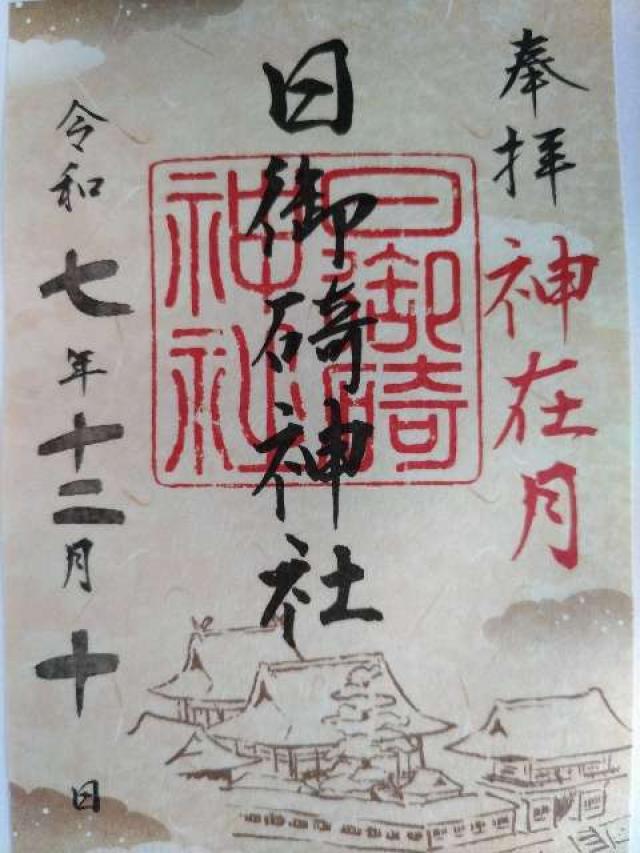 奉拝
神在月
日御碕神社
日御碕
神社
令和七年十二月十日